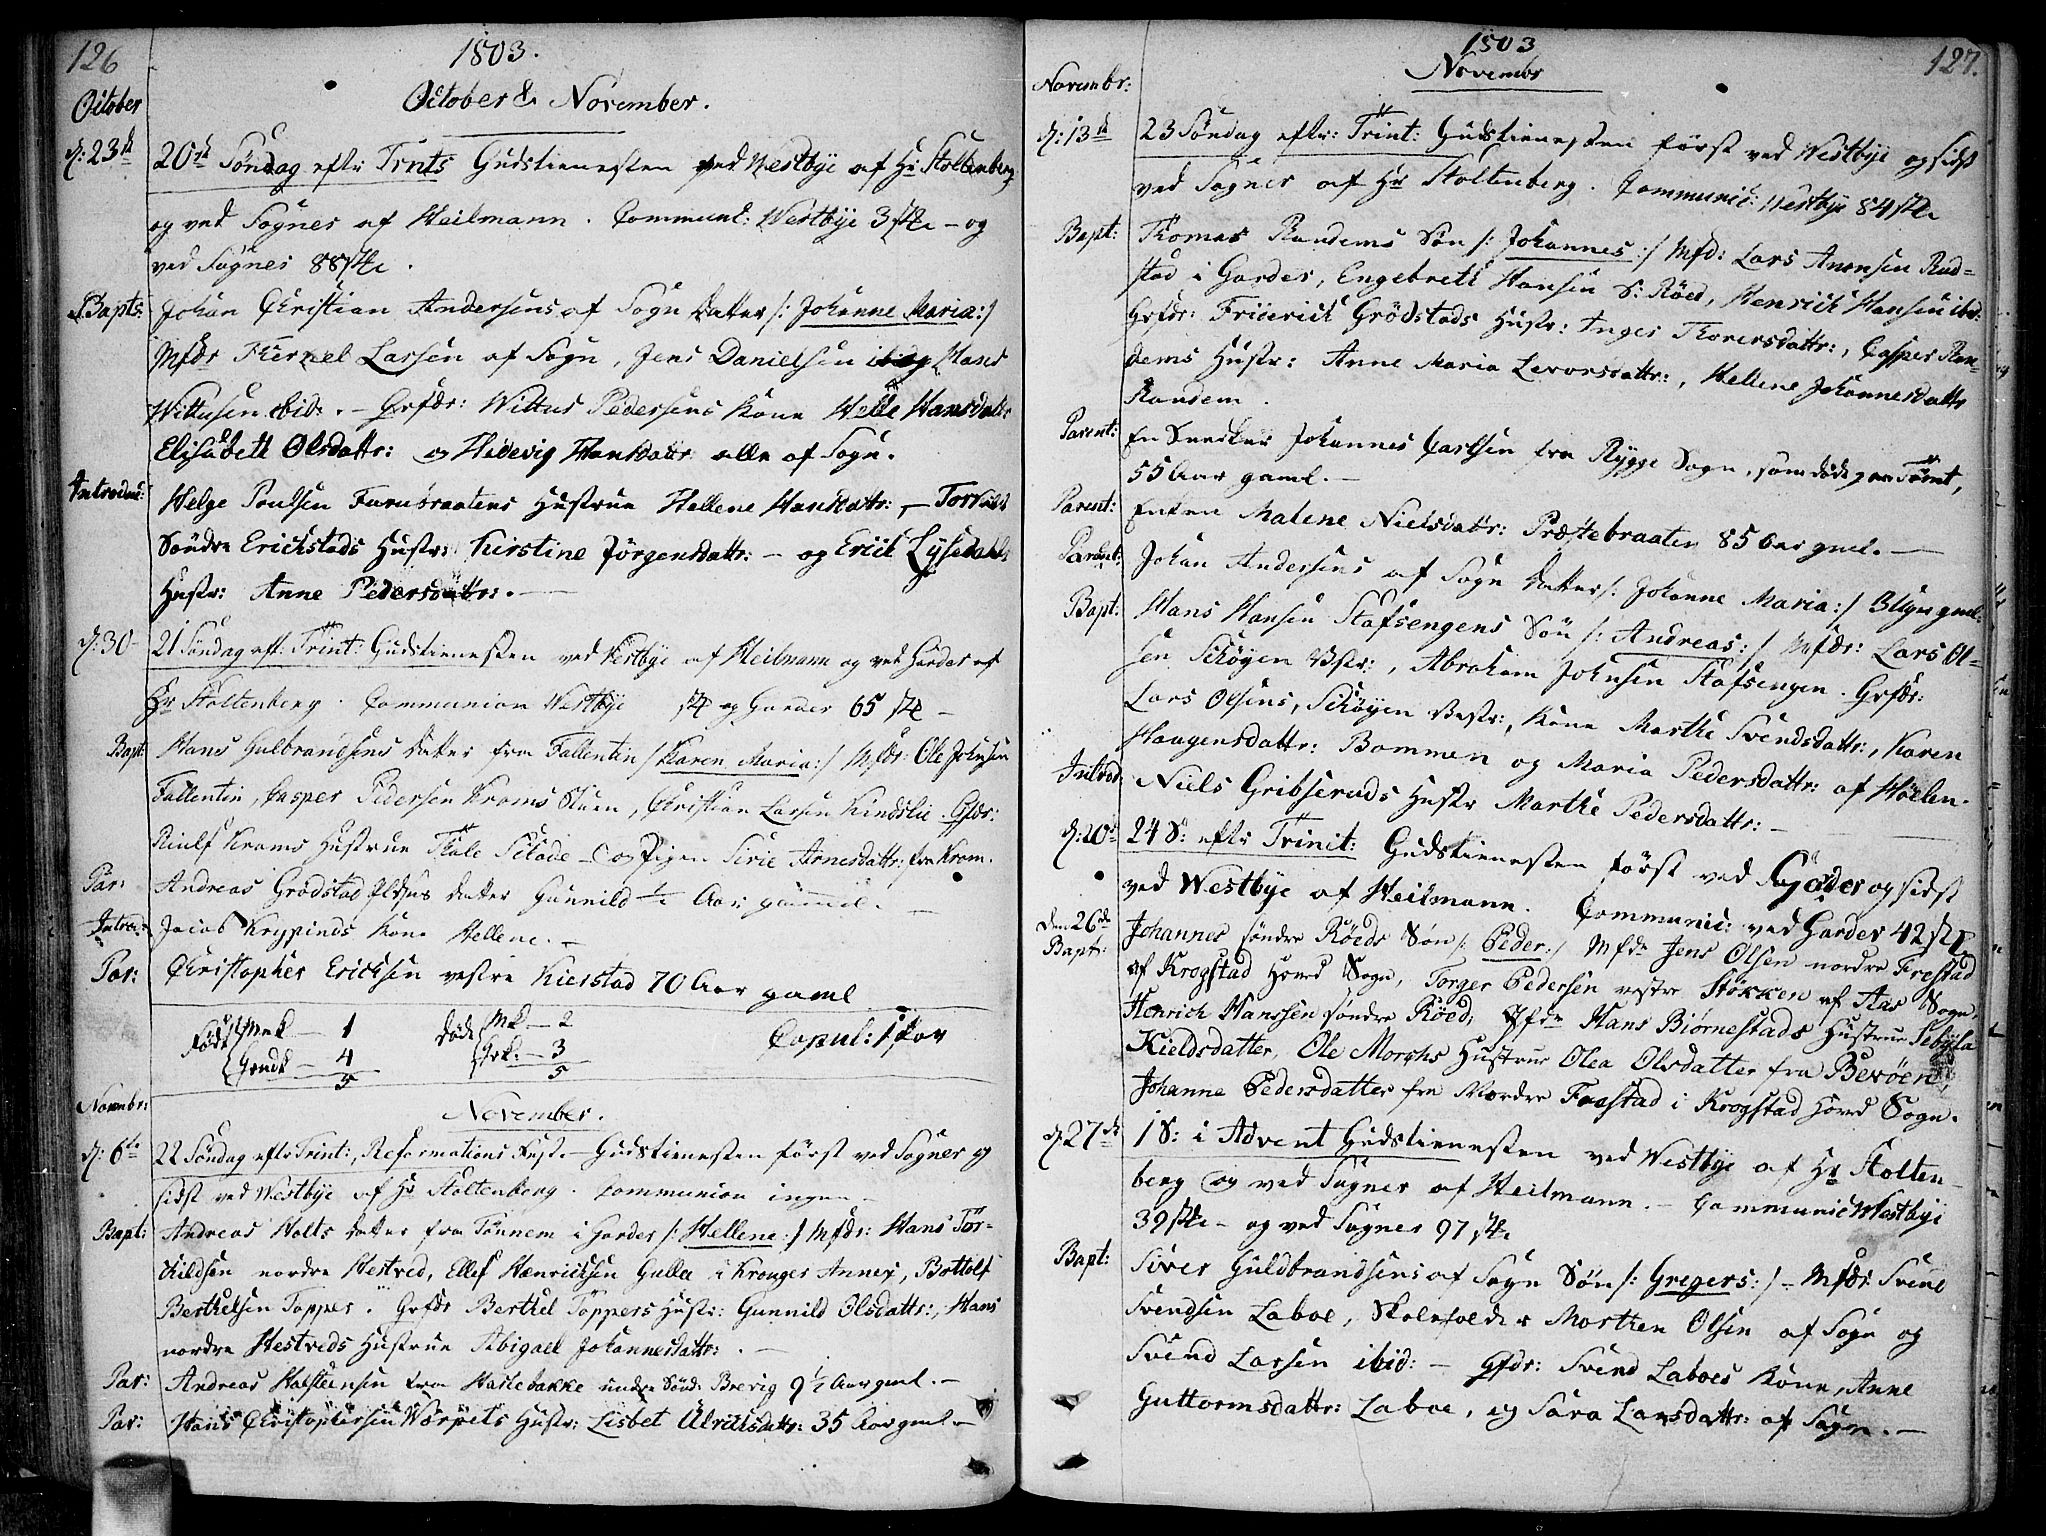 126
1803.
October & November.
October
d: 23de 20de Søndag efter Trnts Gudstienesten ved Westbye af Hr Stoltenberg
og ved Sognes af Heilmann. Communi: Westbye 3 stk - og
ved Sognes 88 stk.
Bapts: Johan Christian Andersens af Sogn datter /: Johanne Maria :/
Mfdr Kiernel Larsen af Sogn, Jens Danielsen ibid, Hans
Wittusen ibid. - Qvfdr: Wittus Pedersens Kone Helle Hansdattr
Elisabeth Olsdattr: og Hedevig Hansdattr alle af Sogn.
Introduc: Helge Poulsen Furubraatens Hustrue Hellene Hansdattr: -
Søndre Erichstads Hustr: Kirstine Jørgensdattr: - og Erich Lysedahls
Hustr: Anne Pedersdattr: . -
d: 30 - 21 Søndag eft: Trint: Gudstienesten ved Westbye af Heilmann og ved Garder af
Hr Stoltenberg. Communion Westbye stk og Garder 65 stk -
Bapt: Hans Gulbrandsens datter fra Fallentin /: Karen Maria :/ Mfdr: Ole Johnsen
Fallentin, Casper Pedersen Kroms Stuen, Christian Larsen Kindslie. Qfdr:
Kroms Hustrue - og Pigen Sirie Arnesdattr: fra Krom.
Par: Andreas Grødstad datter Gunnild ½ Aar gammel. -
Introd: Jacob Krypinds Kone Hellene. -
Par: Christopher Ericksen vestre Kierstad 70 Aar gaml
Fødte Mnk - 1 døde Mk - 2 Copul: 1 Par
Qvndk - 4 Qvk: - 3
5 5
Novembr: November.
d: 6te 22 Søndag eftr Trint:, Reformations Fest. - Gudstienesten först ved Sogner og
sidst ved Westbye af Hr Stoltenberg. Communion ingen -
Bapt: Andreas Holts datter fra Tønnem i Garder /: Hellene :/ Mfdr: Hans Tor-
kildsen nordre Hestved, Ellef Henrichsen Gulla i Kroiger Annex, Bottolf
Berthelsen Topper. Qvfdr Berthel Toppers Hustr: Gunnild Olsdattr:, Hans
nordre Hestveds Hustrue Abigael Johannesdattr: . -
Par: Andreas Halsteensen fra Haslebakke under Sønd: Brevig 9 ½ Aar gml. -
Par: Hans Christophersen Worpets Hustr: Lisbet Ulrichsdattr: 35 Aar gml -
1803
127.
Novembr: Novembr
d: 13de 23 Søndag efter: Trint: Gudstienesten först ved Westbye og sidst
ved Sogner af Hr Stoltenberg. Communic: Westbye 84 stk
Bapt: Thomas Randems Søn /: Johannes :/ Mfd: Lars Anensen Rud-
stad i Garder, Engebrett Hansen S: Røed, Henrich Hansen ibid:
Qvfdr: Friderich Grødstads Hustr: Inger Thorersdattr:, Casper Ran-
dems Hustr: Anne Maria Levorsdattr:, Hellene Johannesdattr
Randem.
Parent: En Snecker Johannes Carlsen fra Rygge Sogn, som døde paa Sømt,
55 Aar gaml. -
Parent: Enken Malene Nielsdattr: Præstebraaten 85 Aar gml. -
Parent: Johan Andersens af Sogn datter /: Johanne Maria :/ 3 Uger gml:
Bapt: Hans Hansen Stafsengens Søn /: Andreas :/ Mfdr: Lars Ol-
sen Schøyen Vestr:, Abraham Johnsen Stafsengen. Qvfdr:
Lars Olsens, Schøyen Vestr:, Kone Marthe Svendsdattr:, Karen
Haagensdattr: Bommen og Maria Pedersdattr: af Høelen.
Introd: Niels Gribseruds Hustr Marthe Pedersdattr: -
d: 20de 24 S: eftr Trinit: Gudstienesten först ved Garder og sidst
ved Westbye af Heilmann. Communic: ved Garder 42 stk
den 26de Johannes søndre Røeds Søn /: Peder :/ Mfdr Jens Olsen nordre Frestad
Bapt: af Krogstad Hoved Sogn, Torger Pedersen vestre Støkken af Aas Sogn,
Henrich Hanssen søndre Røed; Qfdr Hans Biørnestads Hustrue Sebylla
Kieldsdatter, Ole Morchs Hustrue Olea Olsdatter fra Bevøen,
Johanne Pedersdatter fra Nordre Frestad i Krogstad Hoved Sogn.
d: 27de 1 S: i Advent Gudstienesten ved Westbye af Hr Stolten-
berg og ved Sogner af Heilmann. - Communic Westbye
39 stk - og ved Sogner 97 stk
Bapt: Siver Guldbrandsens af Sogn Søn /: Gregers :/ - Mfdr Svend
Svendsen Laboe, Skoleholder Morthen Olsen af Sogn og
Svend Larsen ibid: - Qfdr: Svend Laboes Kone, Anne
Guttormsdattr: Laboe, og Sara Larsdattr: af Sogn. -